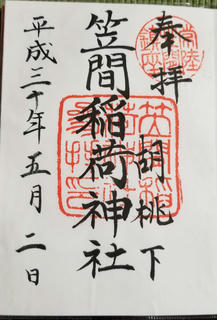 奉拝
胡桃下
笠間稲荷神社
平成三十年五月二日